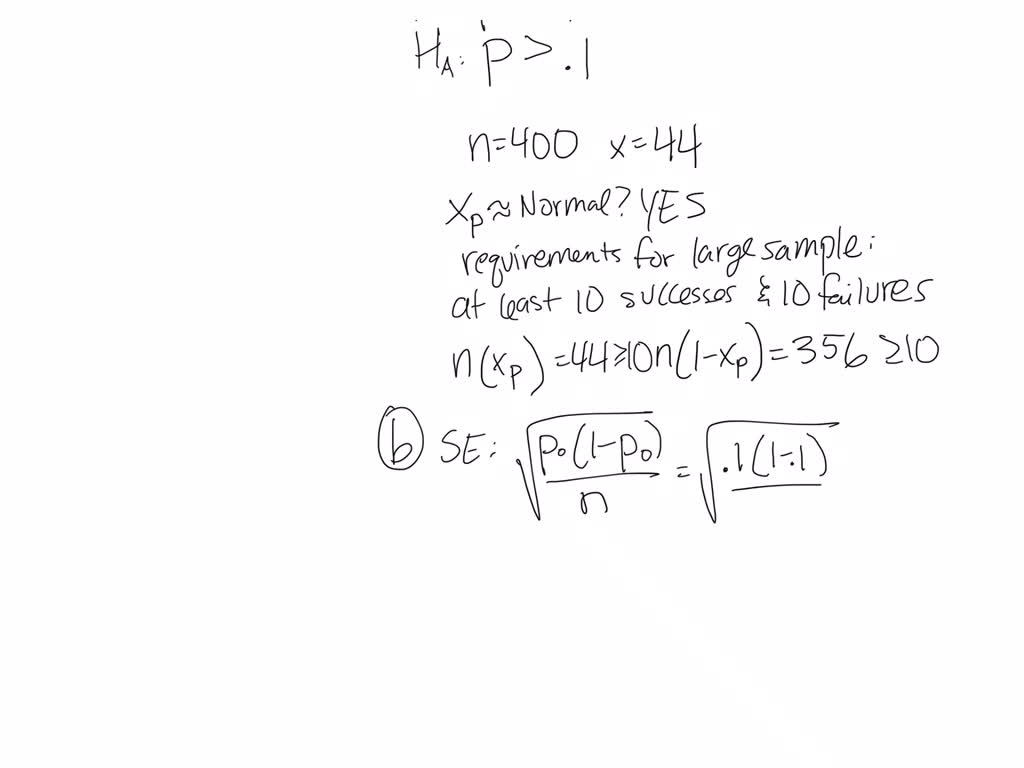 H_A: p > .1
n=400 x=44
x_p ≈ Normal? YES
requirements for large sample:
at least 10 successes & 10 failures
n(x_p) = 44 ≥ 10 n(1-x_p) = 356 ≥ 10
(b) SE: √(p₀(1-p₀)/n) = √(.1(1-.1)